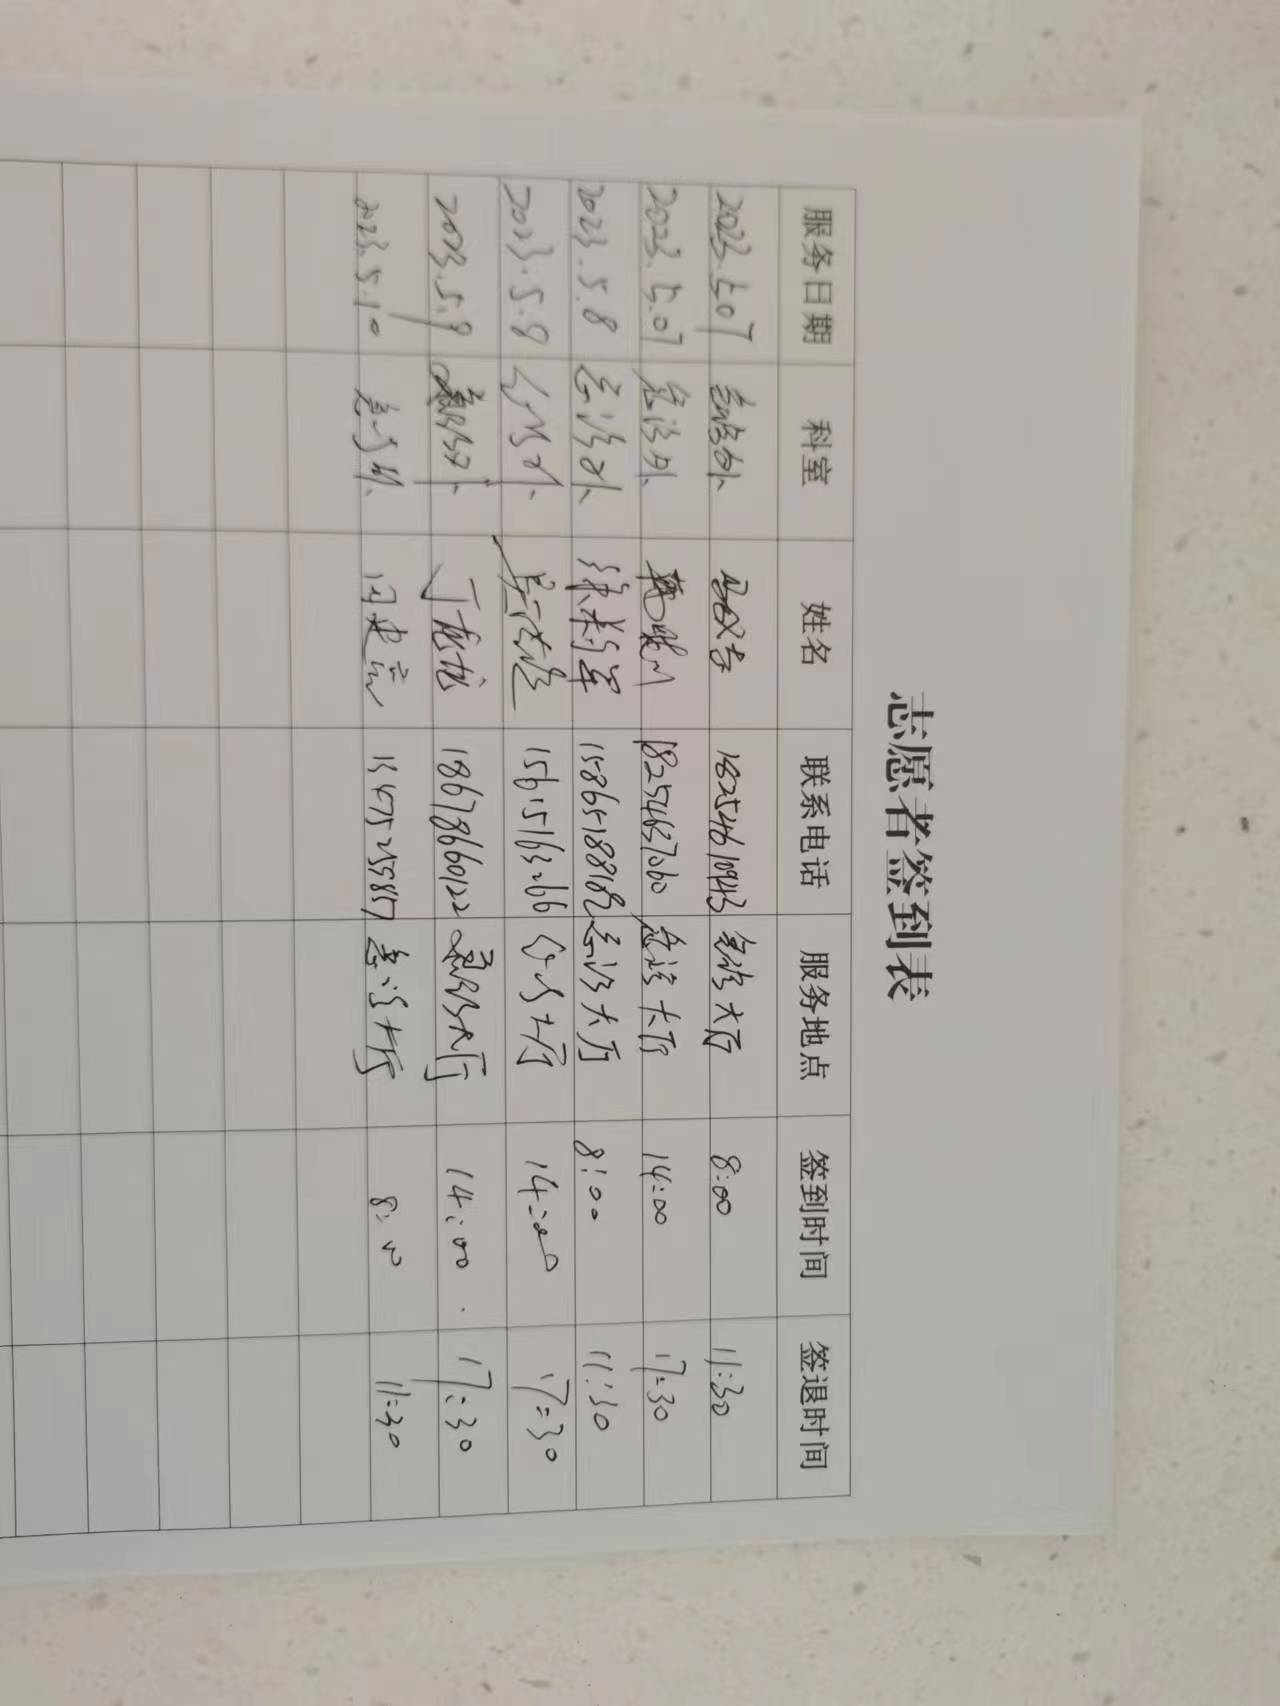 志愿者签到表
服务日期 科室 姓名 联系电话 服务地点 签到时间 签退时间
2023.5.07 急诊外 18254610943 急诊大厅 8:00 11:30
2023.5.07 急诊外 18254637060 急诊大厅 14:00 17:30
2023.5.8 急诊外 15865188182 急诊大厅 8:00 11:30
2023.5.8 急诊外 15615163266 急诊大厅 14:00 17:30
2023.5.9 急诊外 丁龙龙 18678660122 急诊大厅 14:00 17:30
2023.5.10 急诊外 急诊大厅 8:00 11:30